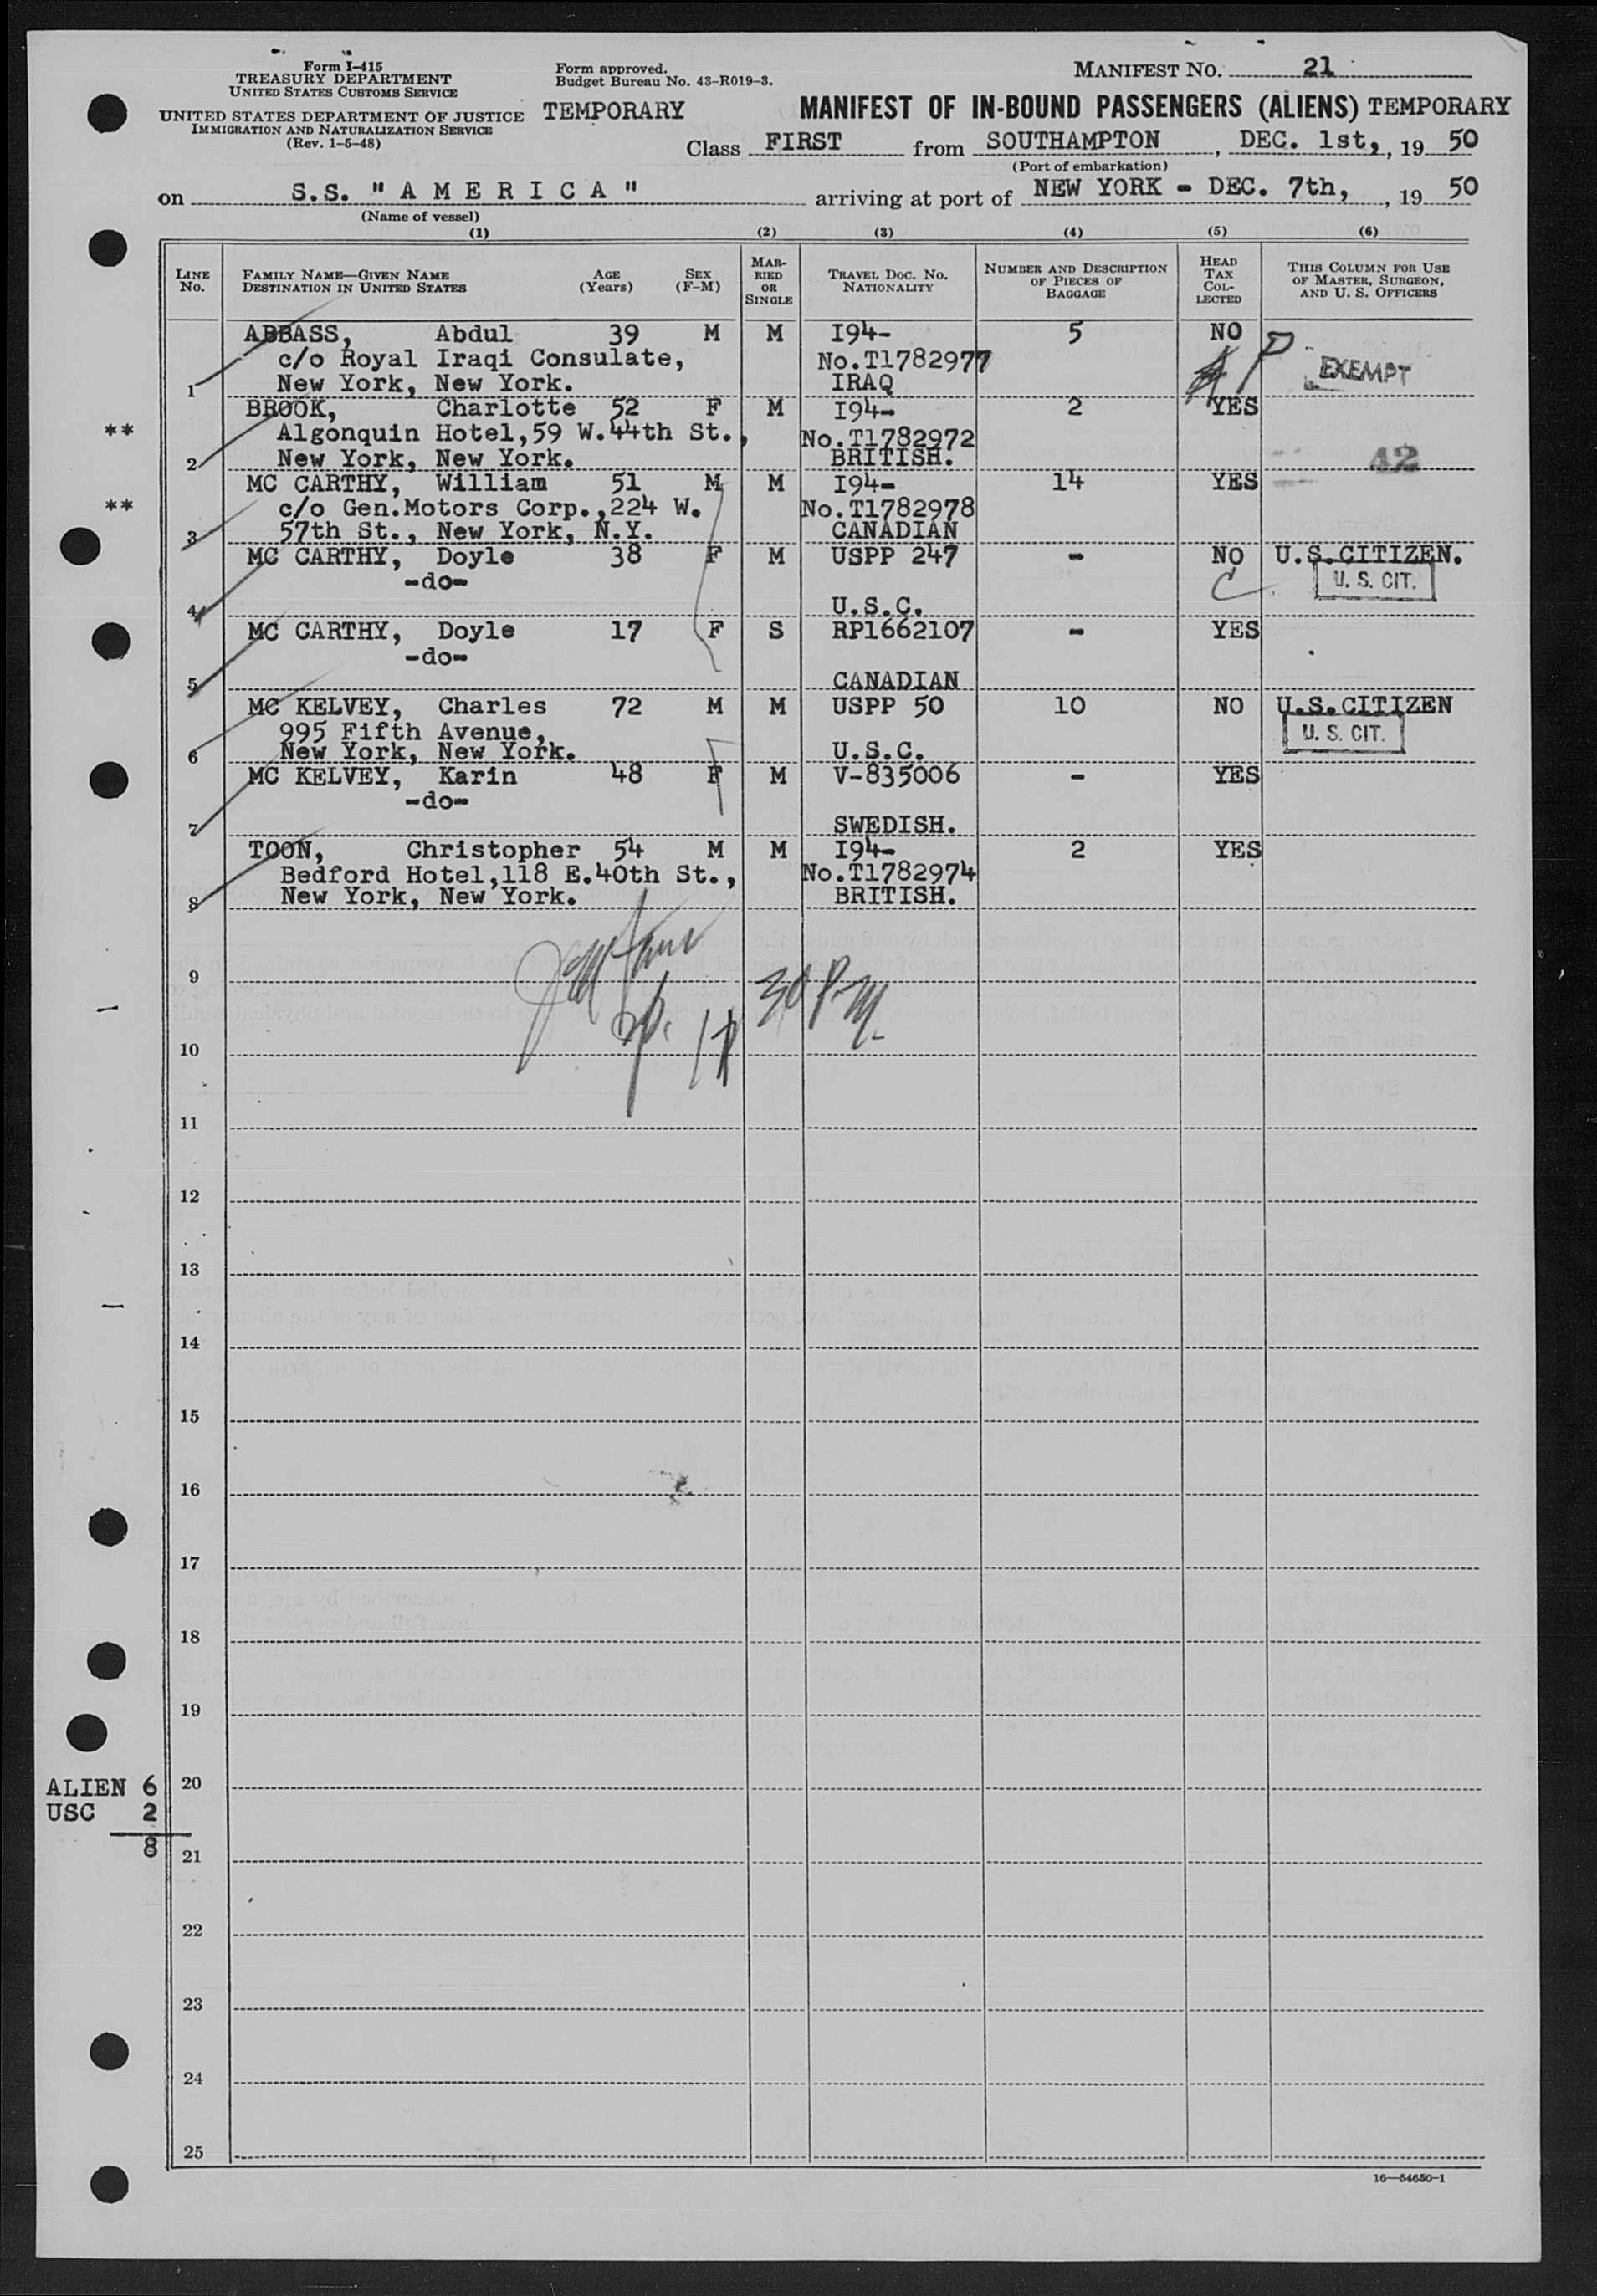 Form I-415
TREASURY DEPARTMENT
UNITED STATES CUSTOMS SERVICE
UNITED STATES DEPARTMENT OF JUSTICE
IMMIGRATION AND NATURALIZATION SERVICE
(Rev. 1-5-48)
Form approved.
Budget Bureau No. 43-R019-3.
MANIFEST No. 21
TEMPORARY MANIFEST OF IN-BOUND PASSENGERS (ALIENS) TEMPORARY
Class FIRST from SOUTHAMPTON, DEC. 1st, 1950
(Port of embarkation)
on S.S. "A M E R I C A" arriving at port of NEW YORK - DEC. 7th, 1950
(Name of vessel)
(1) (2) (3) (4) (5) (6)
LINE No. FAMILY NAME—GIVEN NAME DESTINATION IN UNITED STATES AGE (Years) SEX (F-M) MARRIED OR SINGLE TRAVEL DOC. NO. NATIONALITY NUMBER AND DESCRIPTION OF PIECES OF BAGGAGE HEAD TAX COLLECTED THIS COLUMN FOR USE OF MASTER, SURGEON, AND U. S. OFFICERS
ABBASS, Abdul 39 M M I94- 5 NO
c/o Royal Iraqi Consulate, No.T1782977 P EXEMPT
1 New York, New York. IRAQ
BROOK, Charlotte 52 F M I94- 2 YES
** Algonquin Hotel,59 W.44th St., No.T1782972
2 New York, New York. BRITISH. 42
MC CARTHY, William 51 M M I94- 14 YES
** c/o Gen.Motors Corp.,224 W. No.T1782978
3 57th St., New York, N.Y. CANADIAN
MC CARTHY, Doyle 38 F M USPP 247 - NO U.S.CITIZEN.
-do- C U. S. CIT.
4 U.S.C.
MC CARTHY, Doyle 17 F S RP1662107 - YES
-do-
5 CANADIAN
MC KELVEY, Charles 72 M M USPP 50 10 NO U.S.CITIZEN
995 Fifth Avenue, U. S. CIT.
6 New York, New York. U.S.C.
MC KELVEY, Karin 48 F M V-835006 - YES
-do-
7 SWEDISH.
TOON, Christopher 54 M M I94- 2 YES
Bedford Hotel,118 E.40th St., No.T1782974
8 New York, New York. BRITISH.
9
30 P.M.
10
11
12
13
14
15
16
17
18
19
ALIEN 6 20
USC 2
8 21
22
23
24
25
16—54650-1